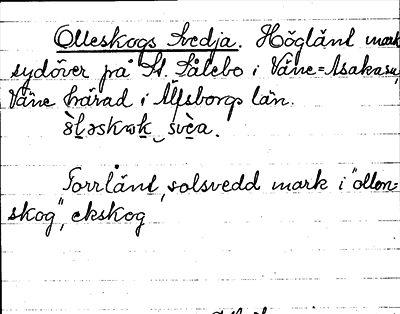 Olleskogs Svedja. Höglänt mark
sydöver på St. Sålebo i Väne-Åsaka sn,
Väne härad i Älfsborgs län.
sve̖a.
Torrlänt, solsvedd mark i "ollon-
skog", ekskog